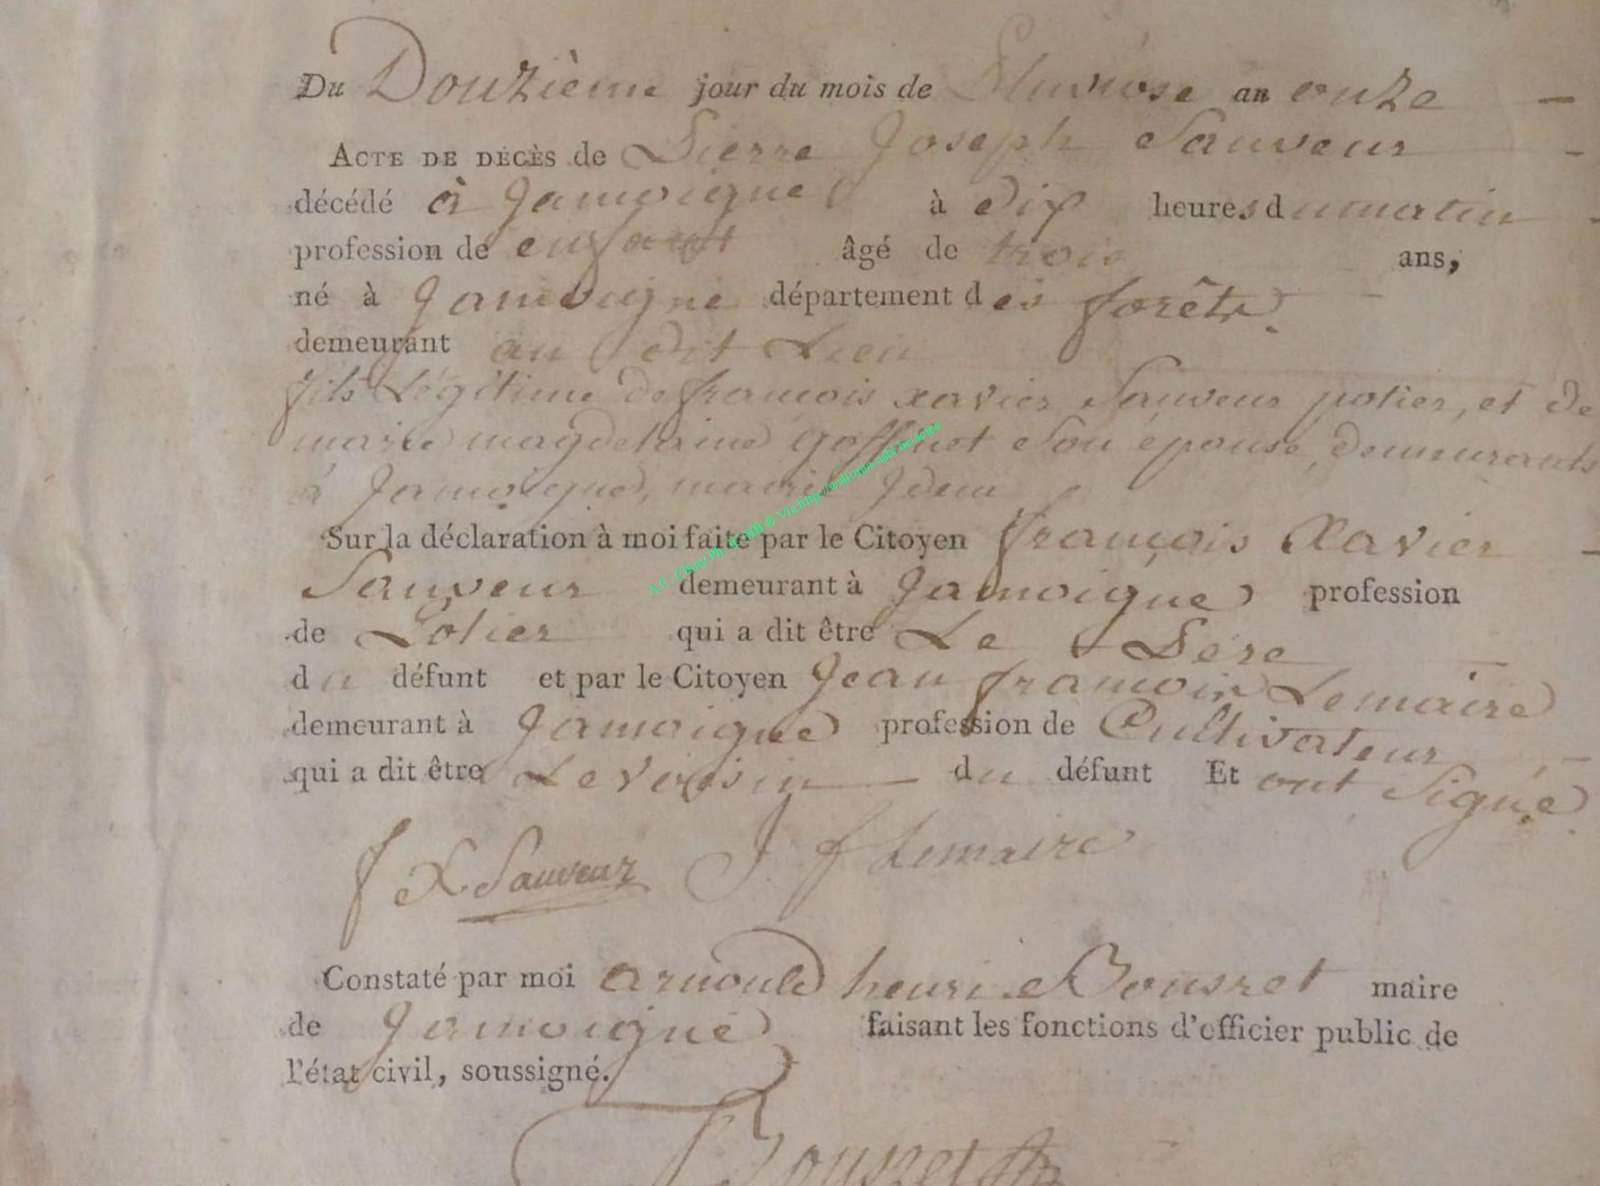 Du Douzième jour du mois de Pluviose an onze
ACTE DE DÉCÈS de Pierre Joseph Sauveur
décédé à Jamoigne à dix heures du matin
profession de enfant âgé de trois ans,
né à Jamoigne département des forêts.
demeurant au dit Lieu
fils Légitime de francois xavier Sauveur potier, et de
marie magdelaine Goffinet Son épouse, demeurants
à Jamoigne, mairie Idem
Sur la déclaration à moi faite par le Citoyen françois Xavier
Sauveur demeurant à Jamoigne profession
de Potier qui a dit être Le Père
du défunt et par le Citoyen Jean francois Lemaire
demeurant à Jamoigne profession de Cultivateur
qui a dit être Le Voisin du défunt Et ont Signé
f X Sauveur J. f Lemaire
Constaté par moi arnould henri Bousret maire
de Jamoigne faisant les fonctions d'officier public de
l'état civil, soussigné.
Bousret